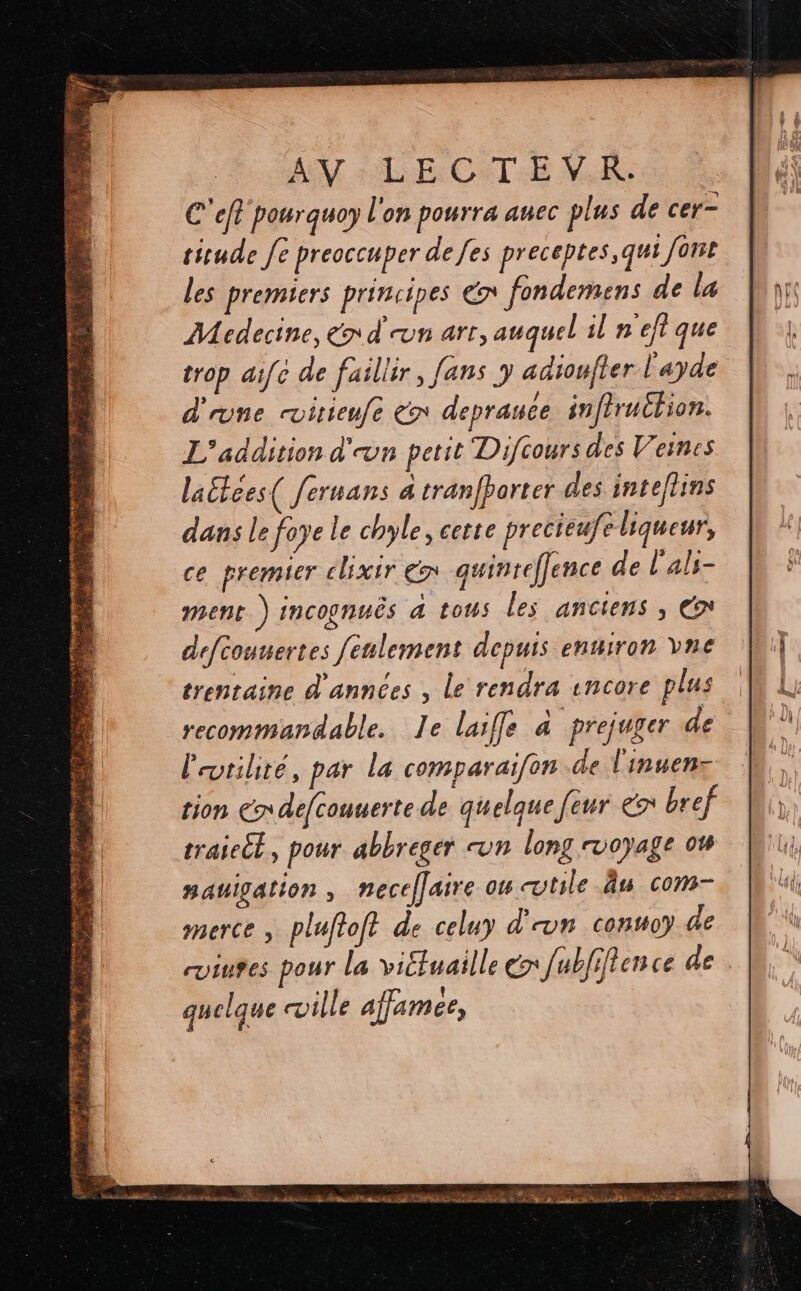 AV LECTEVR.
C'eſt pourquoy l'on pourra auec plus de cer-
titude ſe preoccuper de ſes preceptes, qui ſont
les premiers principes & fondemens de la
Medecine, & d'vn art, auquel il n'eſt que
trop aiſé de faillir, ſans y adiouſter l'ayde
d'vne vitieuſe & deprauée inſtruction.
L'addition d'vn petit Diſcours des Veines
lactées ( ſeruans à tranſporter des inteſtins
dans le foye le chyle, cette precieuſe liqueur,
ce premier elixir & quinteſſence de l'ali-
ment ) incognuës à tous les anciens, &
deſcouuertes ſeulement depuis enuiron vne
trentaine d'années, le rendra encore plus
recommandable. Ie laiſſe à prejuger de
l'vtilité, par la comparaiſon de l'inuen-
tion & deſcouuerte de quelque ſeur & bref
traiect, pour abbreger vn long voyage ou
nauigation, neceſſaire ou vtile au com-
merce, pluſtoſt de celuy d'vn conuoy de
viures pour la victuaille & ſubſiſtence de
quelque ville affamée,